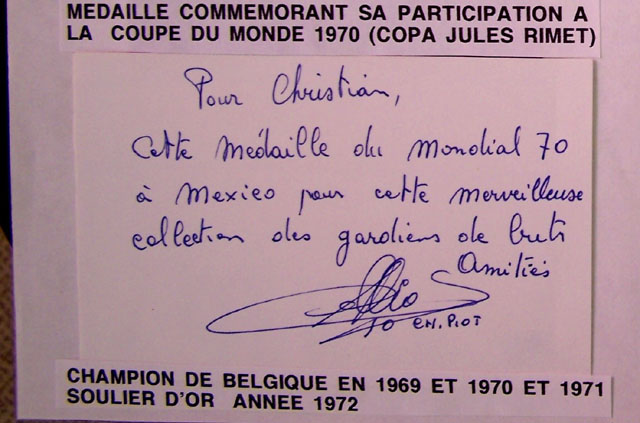 MEDAILLE COMMEMORANT SA PARTICIPATION A
LA COUPE DU MONDE 1970 (COPA JULES RIMET)
Pour Christian,
Cette Médaille du Mondial 70
à Mexico pour cette merveilleuse
collection des gardiens de buts
Amitiés
CH. PIOT
CHAMPION DE BELGIQUE EN 1969 ET 1970 ET 1971
SOULIER D'OR ANNEE 1972